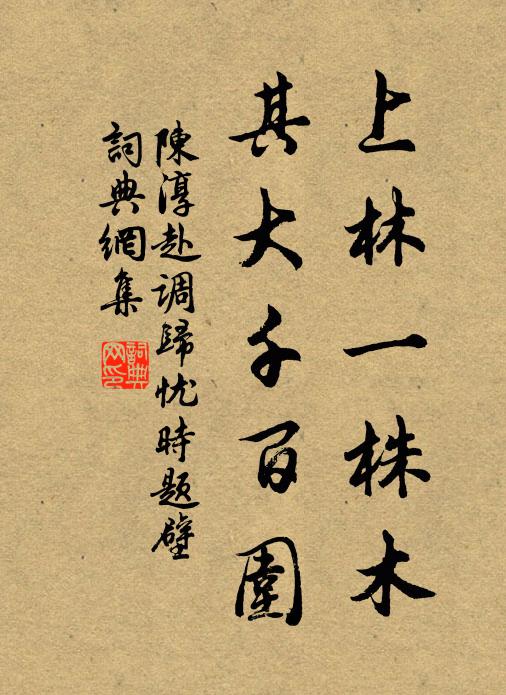 上林一株木
其大千百圍
陳淳赴調歸忧時題壁
詞典網集
詞典网印